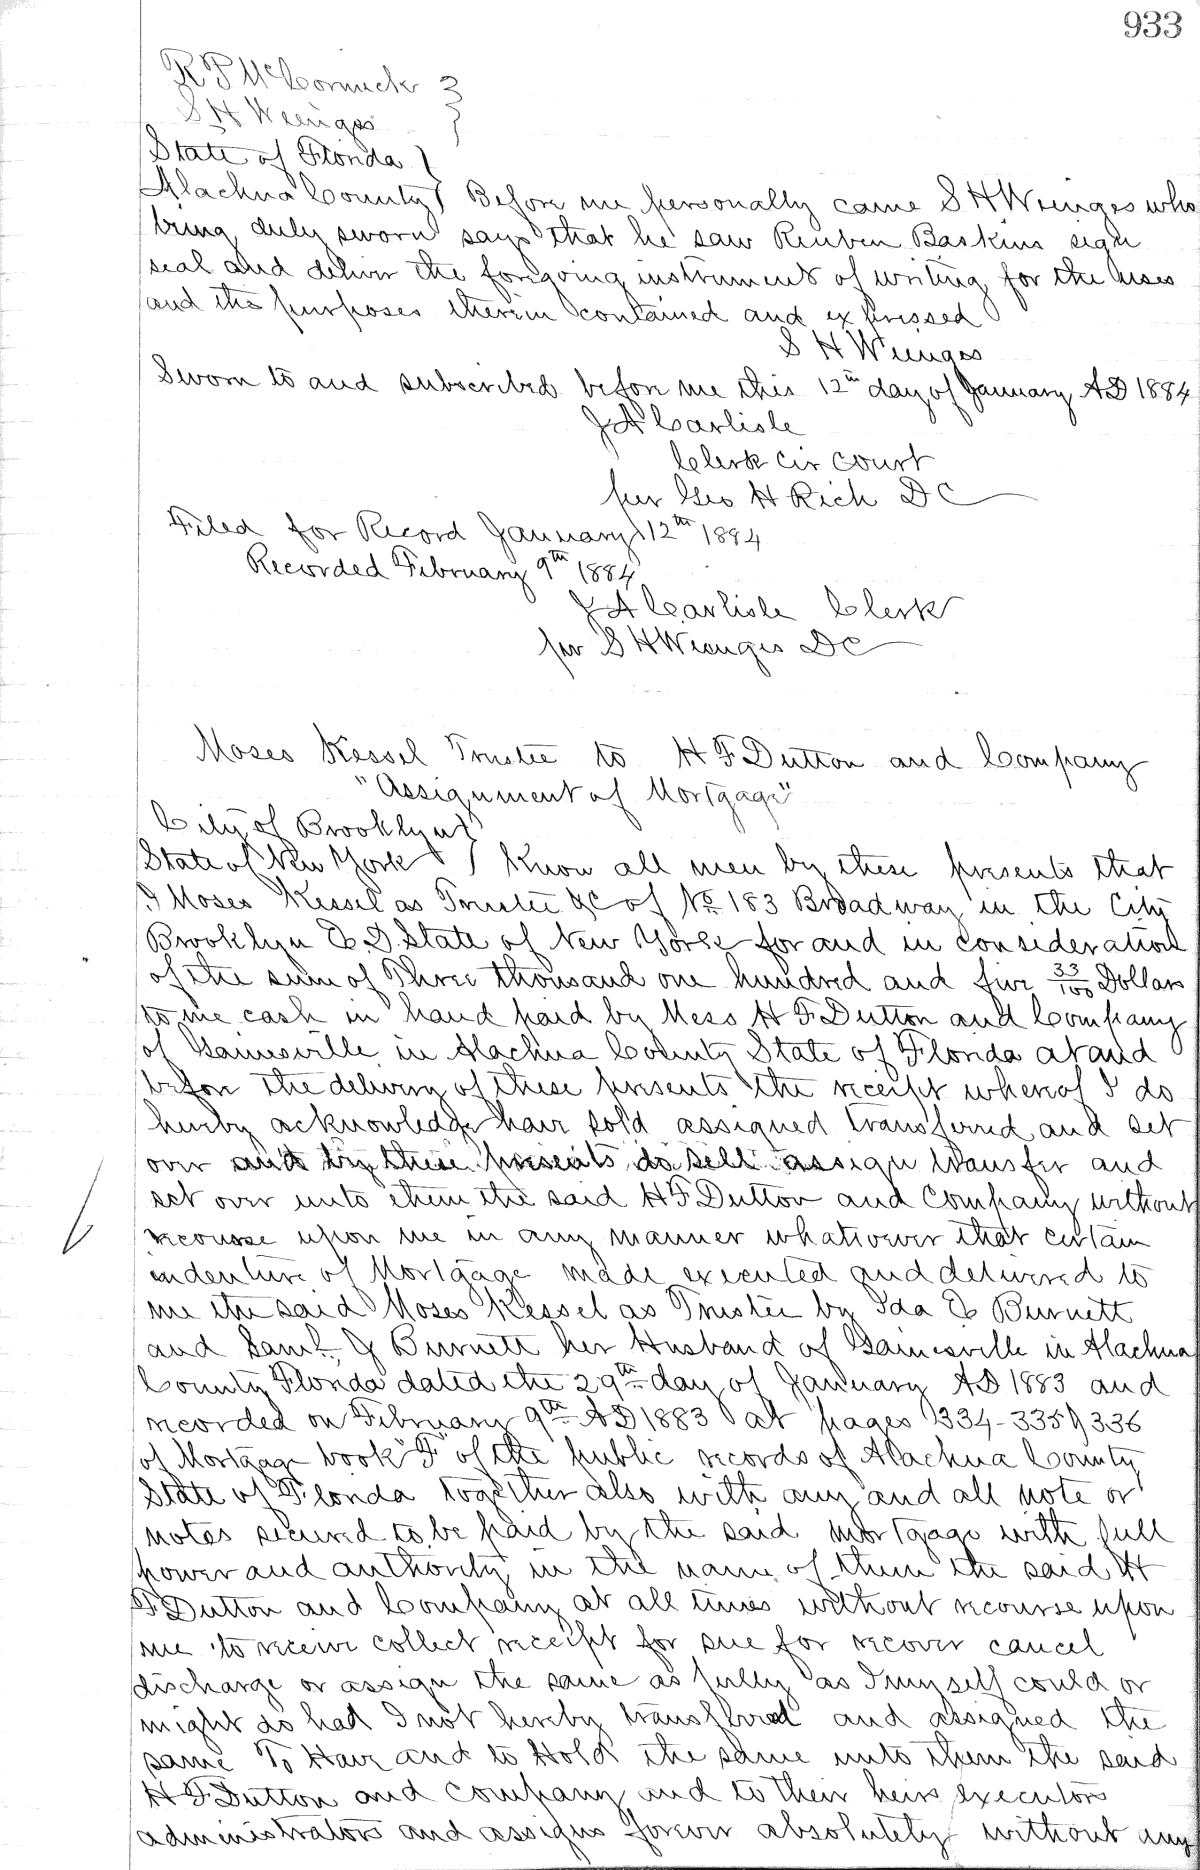 933
R P McCormick }
S H Wienges }
State of Florida }
Alachua County } Before me personally came S H Wienges who
being duly sworn says that he saw Reuben Baskins sign
seal and deliver the foregoing instrument of writing for the uses
and the purposes therein contained and expressed
S H Wienges
Sworn to and subscribed before me this 12th day of January AD 1884
J A Carlisle
Clerk Cir Court
per Geo H Rich DC
Filed for Record January 12th 1884
Recorded February 9th 1884
J A Carlisle Clerk
per S H Wienges DC
Moses Kessel Trustee to H F Dutton and Company
"Assignment of Mortgage"
City of Brooklyn }
State of New York } Know all men by these presents that
I Moses Kessel as Trustee &c of No 183 Broadway in the City
Brooklyn E.D. State of New York for and in consideration
of the sum of Three thousand one hundred and five 33/100 Dollars
to me cash in hand paid by Mess H F Dutton and Company
of Gainesville in Alachua County State of Florida at and
before the delivery of these presents the receipt whereof I do
hereby acknowledge have sold assigned transferred and set
over and by these presents do sell assign transfer and
set over unto them the said H F Dutton and Company without
recourse upon me in any manner whatsoever that certain
indenture of Mortgage made executed and delivered to
me the said Moses Kessel as Trustee by Ida E Burnett
and Saml J Burnett her Husband of Gainesville in Alachua
County Florida dated the 29th day of January AD 1883 and
recorded on February 9th AD 1883 at pages 334-335 & 336
of Mortgage book "F" of the public records of Alachua County
State of Florida together also with any and all note or
notes secured to be paid by the said mortgage with full
power and authority in the name of them the said H
F Dutton and Company at all times without recourse upon
me to receive collect receipt for sue for recover cancel
discharge or assign the same as fully as I myself could or
might do had I not hereby transferred and assigned the
same To Have and to Hold the same unto them the said
H F Dutton and Company and to their heirs executors
administrators and assigns forever absolutely without any